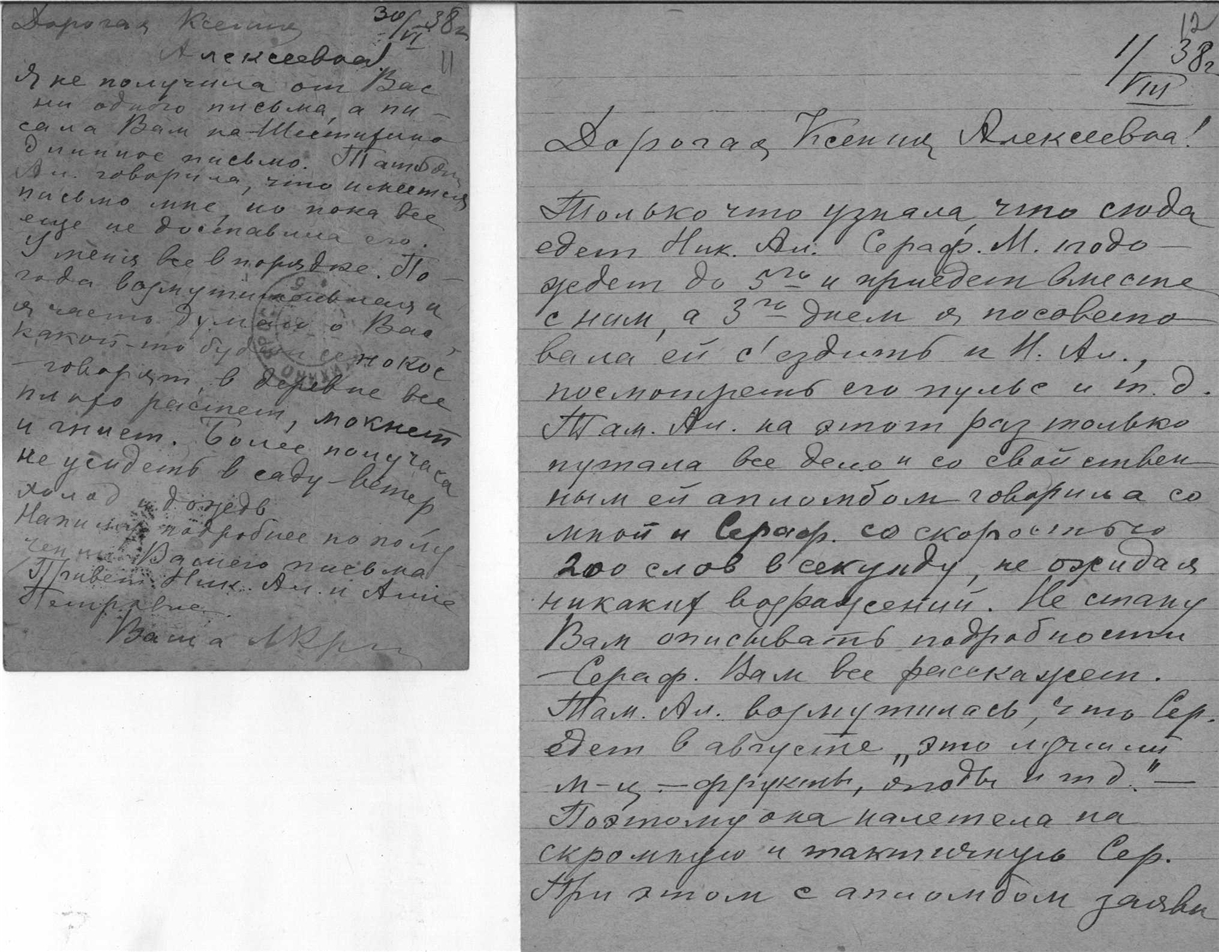 Дорогая Ксения
30/VI 38г.
Алексеевна!
11
Я не получила от Вас
ни одного письма, а пи
сала Вам на
длинное письмо.
Ал. говорила, что имеется
письмо мне, но пока все
еще не доставила его.
У меня все в порядке. По-
года возмутительная и
я часто думаю о Вас
какой-то будет сенокос
– говорят, в деревне все
плохо растет, мокнет
и гниет. Более получаса
не усидеть в саду – ветер
холод и дождь
Напишу подробнее по полу
чении Вашего письма
Привет Ник. Ал. и Анне
Петровне.
Ваша
12
1/VIII 38г
Дорогая Ксения Алексеевна!
Только что узнала, что сюда
едет Ник. Ал. Сераф. М. подо–
ждет до 5го и приедет вместе
с ним, а 3го днем я посовето
вала ей с'ездить к Н. Ал.,
посмотреть его пульс и т.д.
Там. Ал. на этот раз только
путала все дело и со свойствен–
ным ей апломбом говорила со
мной и Сераф. со скоростью
200 слов в секунду, не ожидая
никаких возражений. Не стану
Вам описывать подробности
– Сераф. Вам все расскажет.
Там. Ал. возмутилась, что Сер.
едет в августе „это лучший
м-ц – фрукты, ягоды и т.д." –
Поэтому она налетела на
скромную и тактичную Сер.
При этом с апломбом заяви